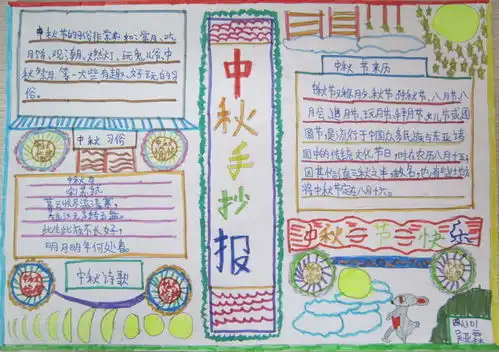 中秋节的习俗非常多如:赏月、吃
月饼、观潮、燃灯、玩兔儿爷、中
秋祭月等一大些有趣、好玩的习
俗。
中秋习俗
中秋月
暮云收尽溢清寒,
银汉无声转玉盘。
此生此夜不长好,
明月明年何处看。
中秋诗歌
中秋手抄报
中秋节来历
中秋节又称月夕、秋节、仲秋节、八月节、八
月会、追月节、玩月节、拜月节、女儿节或团
圆节,是流行于中国众多民族与东亚诸
国中的传统文化节日,时在农历八月十五;
因其恰值三秋之半,故名,也有些地方
将中秋节定在八月十六。
中秋节快乐